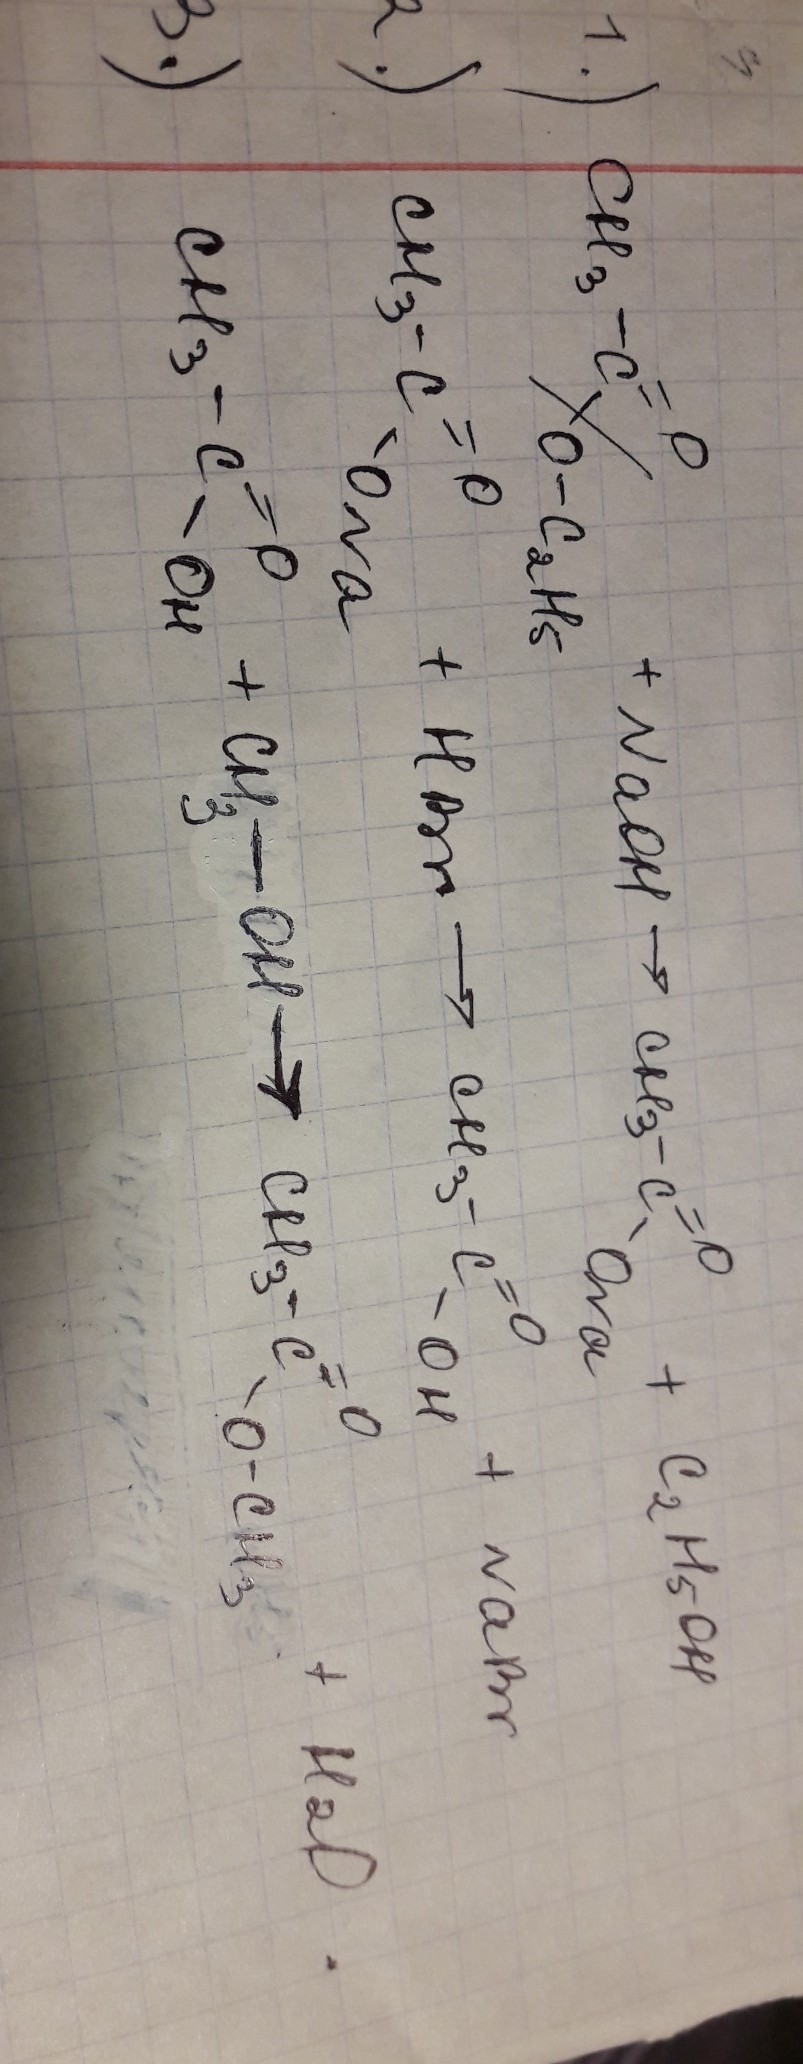 1.) CH3-C=O-O-C2H5 + NaOH → CH3-C=O-ONa + C2H5OH
2.) CH3-C=O-ONa + HBr → CH3-C=O-OH + NaBr
3.) CH3-C=O-OH + CH3-OH → CH3-C=O-O-CH3 + H2O.